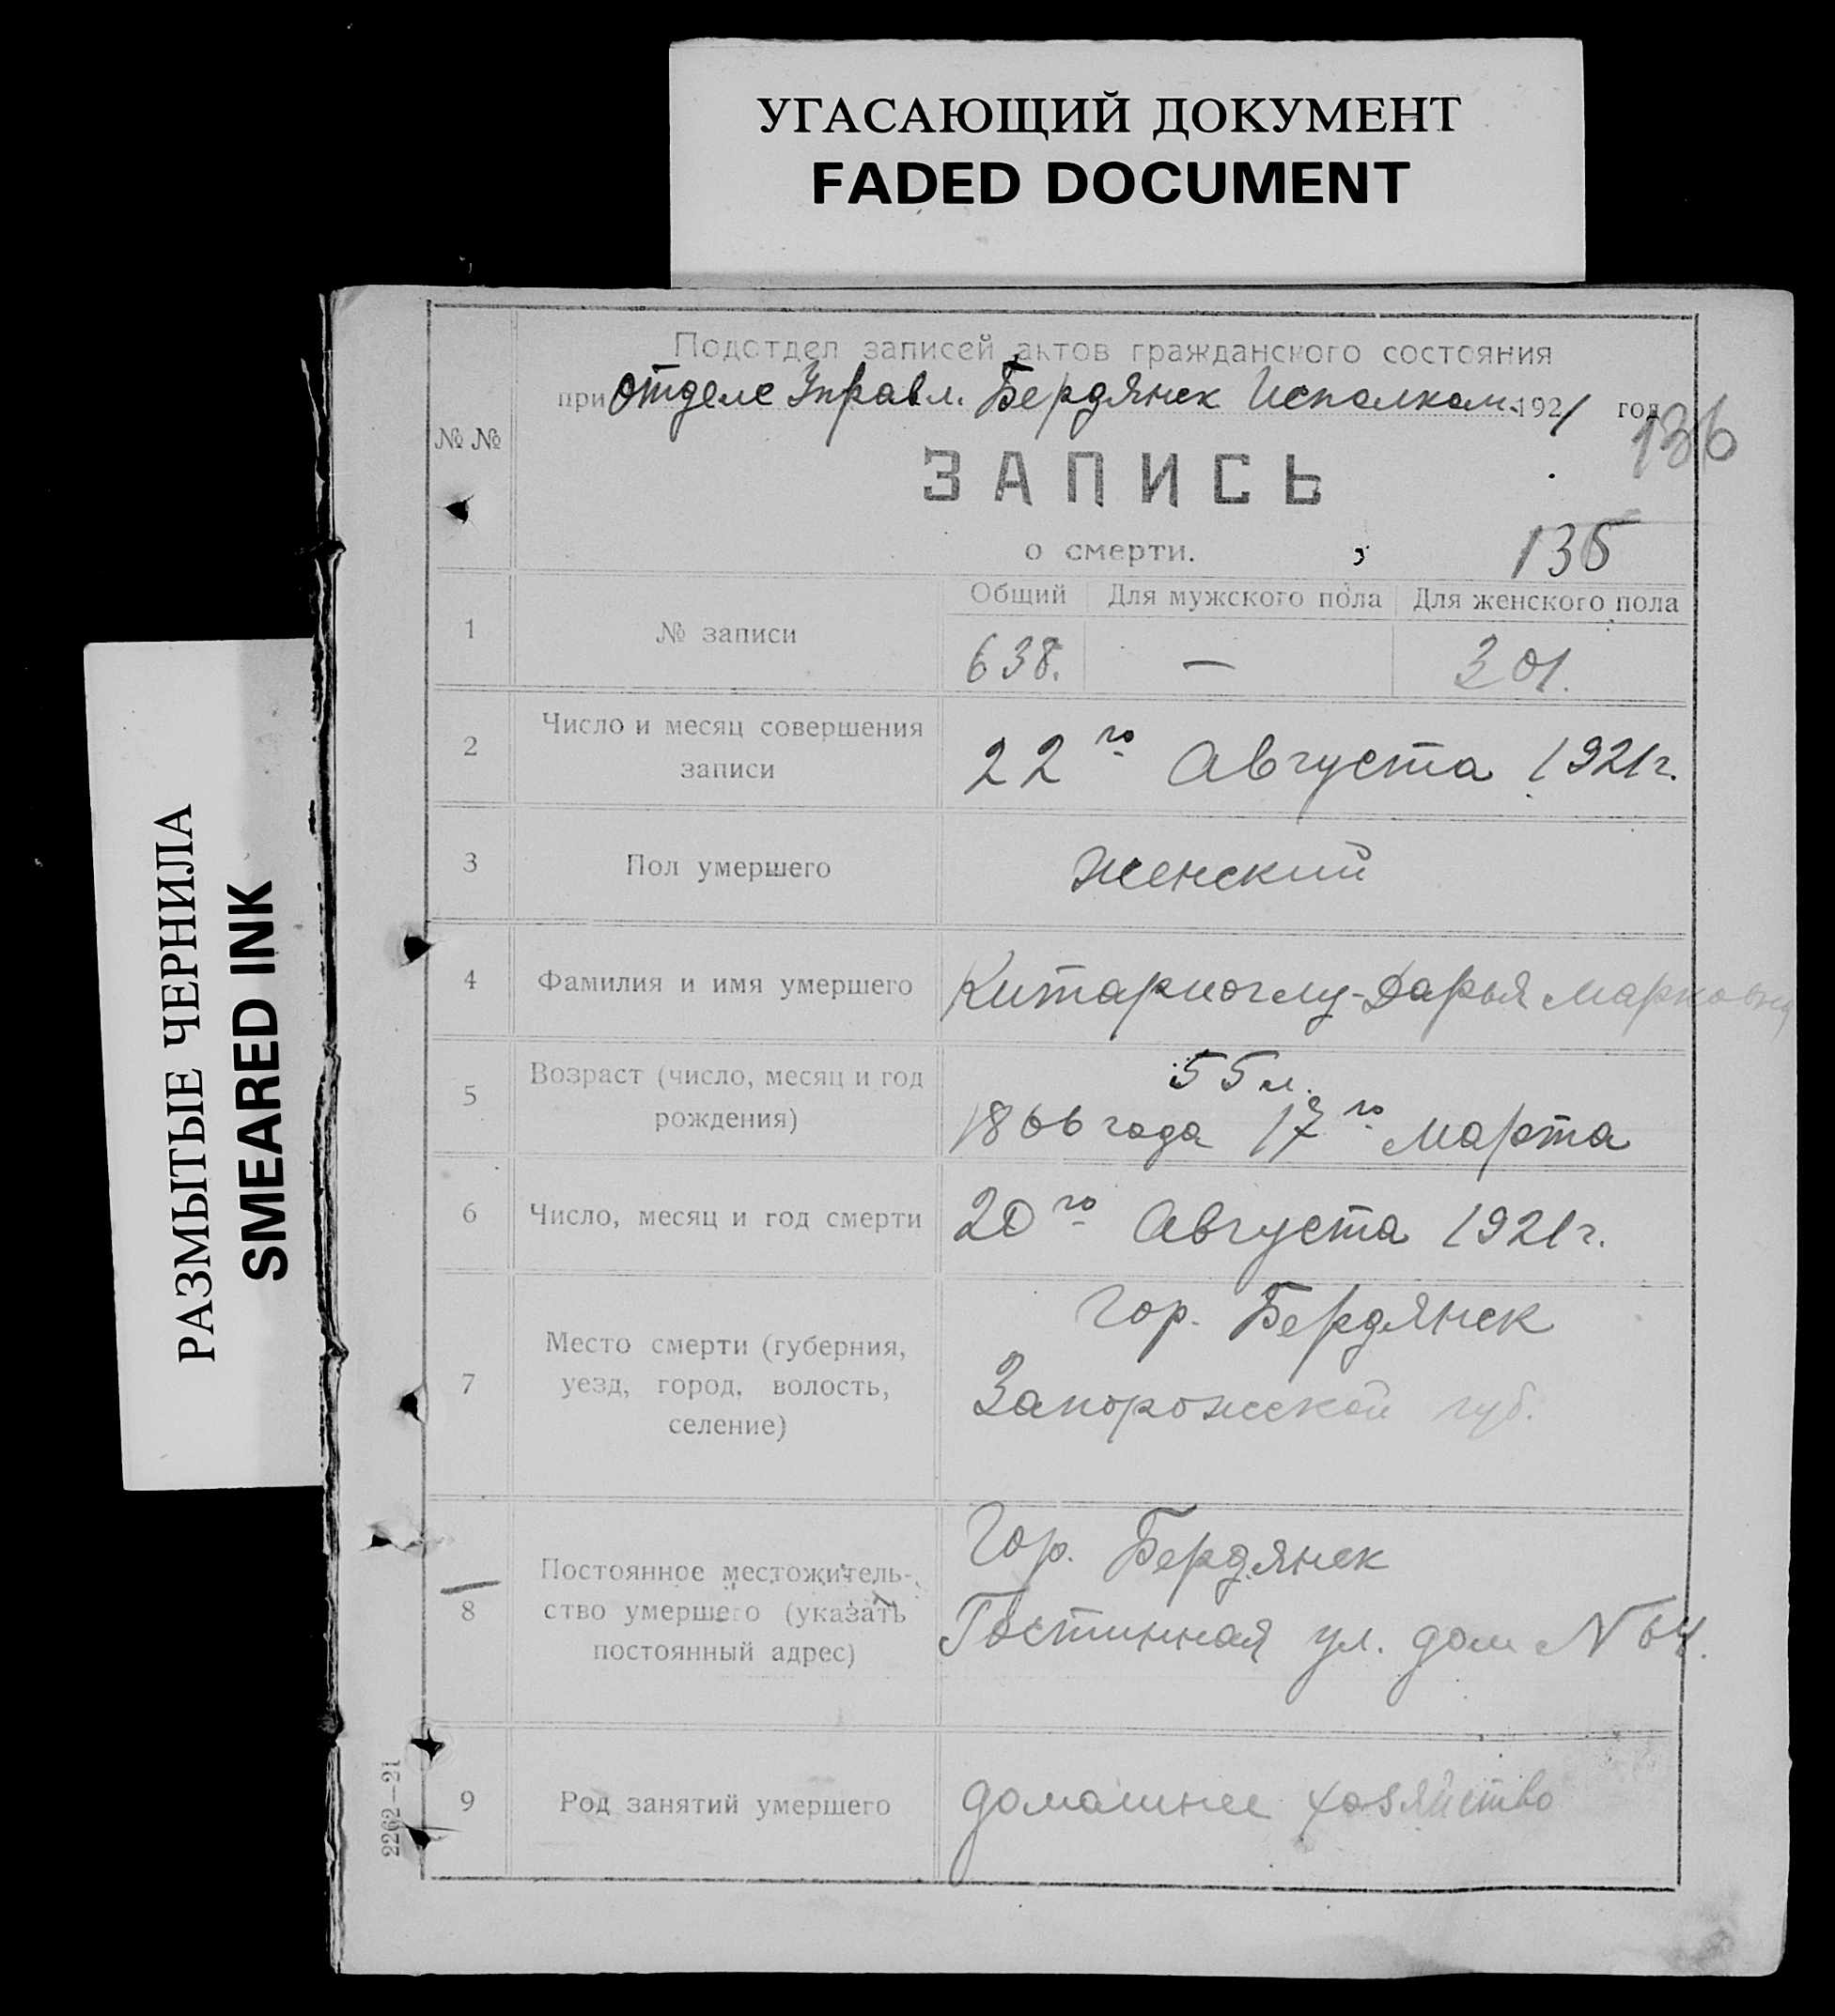 УГАСАЮЩИЙ ДОКУМЕНТ
FADED DOCUMENT
РАЗМЫТЫЕ ЧЕРНИЛА
SMEARED INK
Подотдел записей актов гражданского состояния
при Отделе Управл. Бердянск Исполком. 1921 год
136
№ №
ЗАПИСЬ
о смерти.
135
Общий Для мужского пола Для женского пола
1 № записи 638. — 301.
2 Число и месяц совершения
записи
22го Августа 1921г.
3 Пол умершего женский
4 Фамилия и имя умершего Китариоглу-Дарья Марковна
5 Возраст (число, месяц и год
рождения)
55 л.
1866 года 17го Марта
6 Число, месяц и год смерти 20го Августа 1921г.
7 Место смерти (губерния,
уезд, город, волость,
селение)
Гор. Бердянск
Запорожской губ.
8 Постоянное местожитель-
ство умершего (указать
постоянный адрес)
Гор. Бердянск
Гостинная ул. дом N 64.
9 Род занятий умершего домашнее хозяйство
2262—21